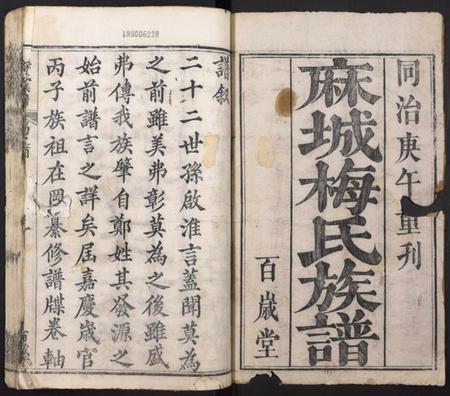 同治庚午重刊
麻城梅氏族譜
百歲堂
199006228
譜叙
二十二世孫啟淮言蓋聞莫為
之前雖美弗彰莫為之後雖盛
弗傳我族肇自鄭姓其發源之
始前譜言之詳矣屆嘉慶歲官
丙子族祖在岡纂修譜牒卷軸